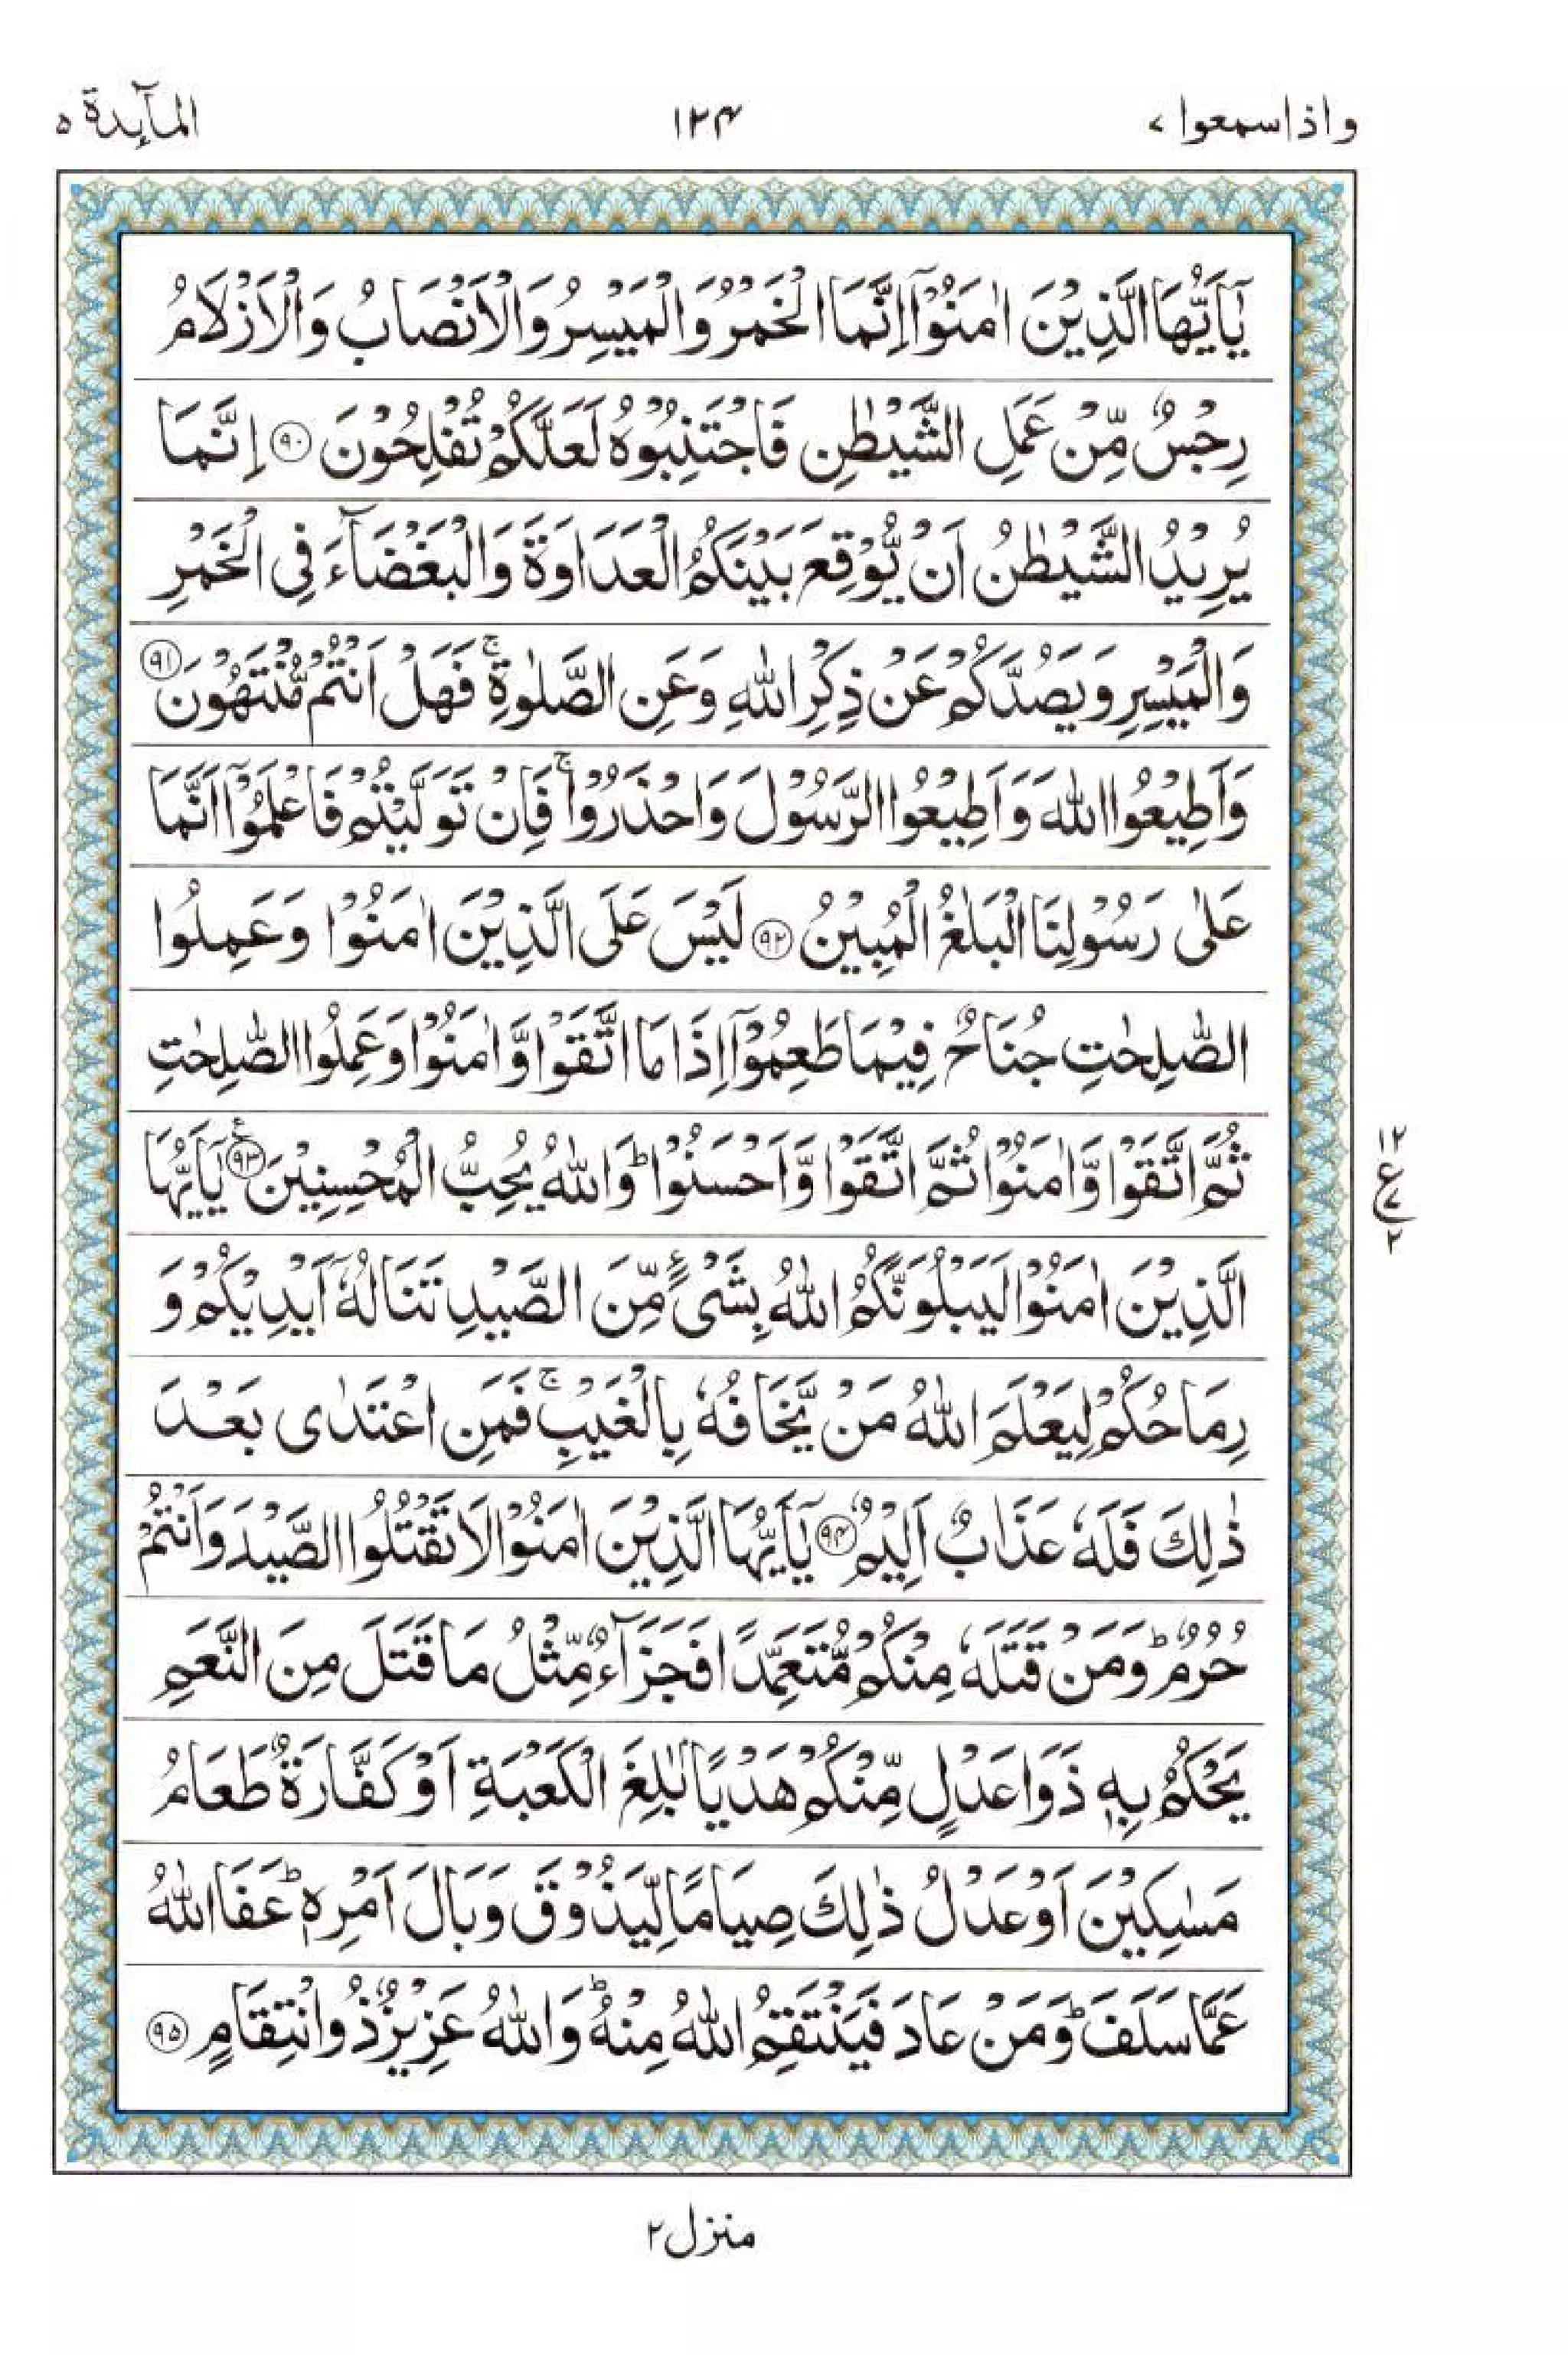 واذاسمعوا ٧
١٢٤
المآئدة ٥
يٰۤاَيُّهَا الَّذِيْنَ اٰمَنُوْۤا اِنَّمَا الْخَمْرُ وَالْمَيْسِرُ وَالْاَنْصَابُ وَالْاَزْلَامُ
رِجْسٌ مِّنْ عَمَلِ الشَّيْطٰنِ فَاجْتَنِبُوْهُ لَعَلَّكُمْ تُفْلِحُوْنَ ٩٠ اِنَّمَا
يُرِيْدُ الشَّيْطٰنُ اَنْ يُّوْقِعَ بَيْنَكُمُ الْعَدَاوَةَ وَالْبَغْضَآءَ فِى الْخَمْرِ
وَالْمَيْسِرِ وَيَصُدَّكُمْ عَنْ ذِكْرِ اللّٰهِ وَعَنِ الصَّلٰوةِ ۚ فَهَلْ اَنْتُمْ مُّنْتَهُوْنَ ٩١
وَاَطِيْعُوا اللّٰهَ وَاَطِيْعُوا الرَّسُوْلَ وَاحْذَرُوْا ۚ فَاِنْ تَوَلَّيْتُمْ فَاعْلَمُوْۤا اَنَّمَا
عَلٰى رَسُوْلِنَا الْبَلٰغُ الْمُبِيْنُ ٩٢ لَيْسَ عَلَى الَّذِيْنَ اٰمَنُوْا وَعَمِلُوا
الصّٰلِحٰتِ جُنَاحٌ فِيْمَا طَعِمُوْۤا اِذَا مَا اتَّقَوْا وَّاٰمَنُوْا وَعَمِلُوا الصّٰلِحٰتِ
ثُمَّ اتَّقَوْا وَّاٰمَنُوْا ثُمَّ اتَّقَوْا وَّاَحْسَنُوْا ؕ وَاللّٰهُ يُحِبُّ الْمُحْسِنِيْنَ ٩٣ ع يٰۤاَيُّهَا
١٢ ع ٧ ٢
الَّذِيْنَ اٰمَنُوْا لَيَبْلُوَنَّكُمُ اللّٰهُ بِشَىْءٍ مِّنَ الصَّيْدِ تَنَالُهٗۤ اَيْدِيْكُمْ وَ
رِمَاحُكُمْ لِيَعْلَمَ اللّٰهُ مَنْ يَّخَافُهٗ بِالْغَيْبِ ۚ فَمَنِ اعْتَدٰى بَعْدَ
ذٰلِكَ فَلَهٗ عَذَابٌ اَلِيْمٌ ٩٤ يٰۤاَيُّهَا الَّذِيْنَ اٰمَنُوْا لَا تَقْتُلُوا الصَّيْدَ وَاَنْتُمْ
حُرُمٌ ؕ وَمَنْ قَتَلَهٗ مِنْكُمْ مُّتَعَمِّدًا فَجَزَآءٌ مِّثْلُ مَا قَتَلَ مِنَ النَّعَمِ
يَحْكُمُ بِهٖ ذَوَا عَدْلٍ مِّنْكُمْ هَدْيًۢا بٰلِغَ الْكَعْبَةِ اَوْ كَفَّارَةٌ طَعَامُ
مَسٰكِيْنَ اَوْ عَدْلُ ذٰلِكَ صِيَامًا لِّيَذُوْقَ وَبَالَ اَمْرِهٖ ؕ عَفَا اللّٰهُ
عَمَّا سَلَفَ ؕ وَمَنْ عَادَ فَيَنْتَقِمُ اللّٰهُ مِنْهُ ؕ وَاللّٰهُ عَزِيْزٌ ذُو انْتِقَامٍ ٩٥
منزل ٢